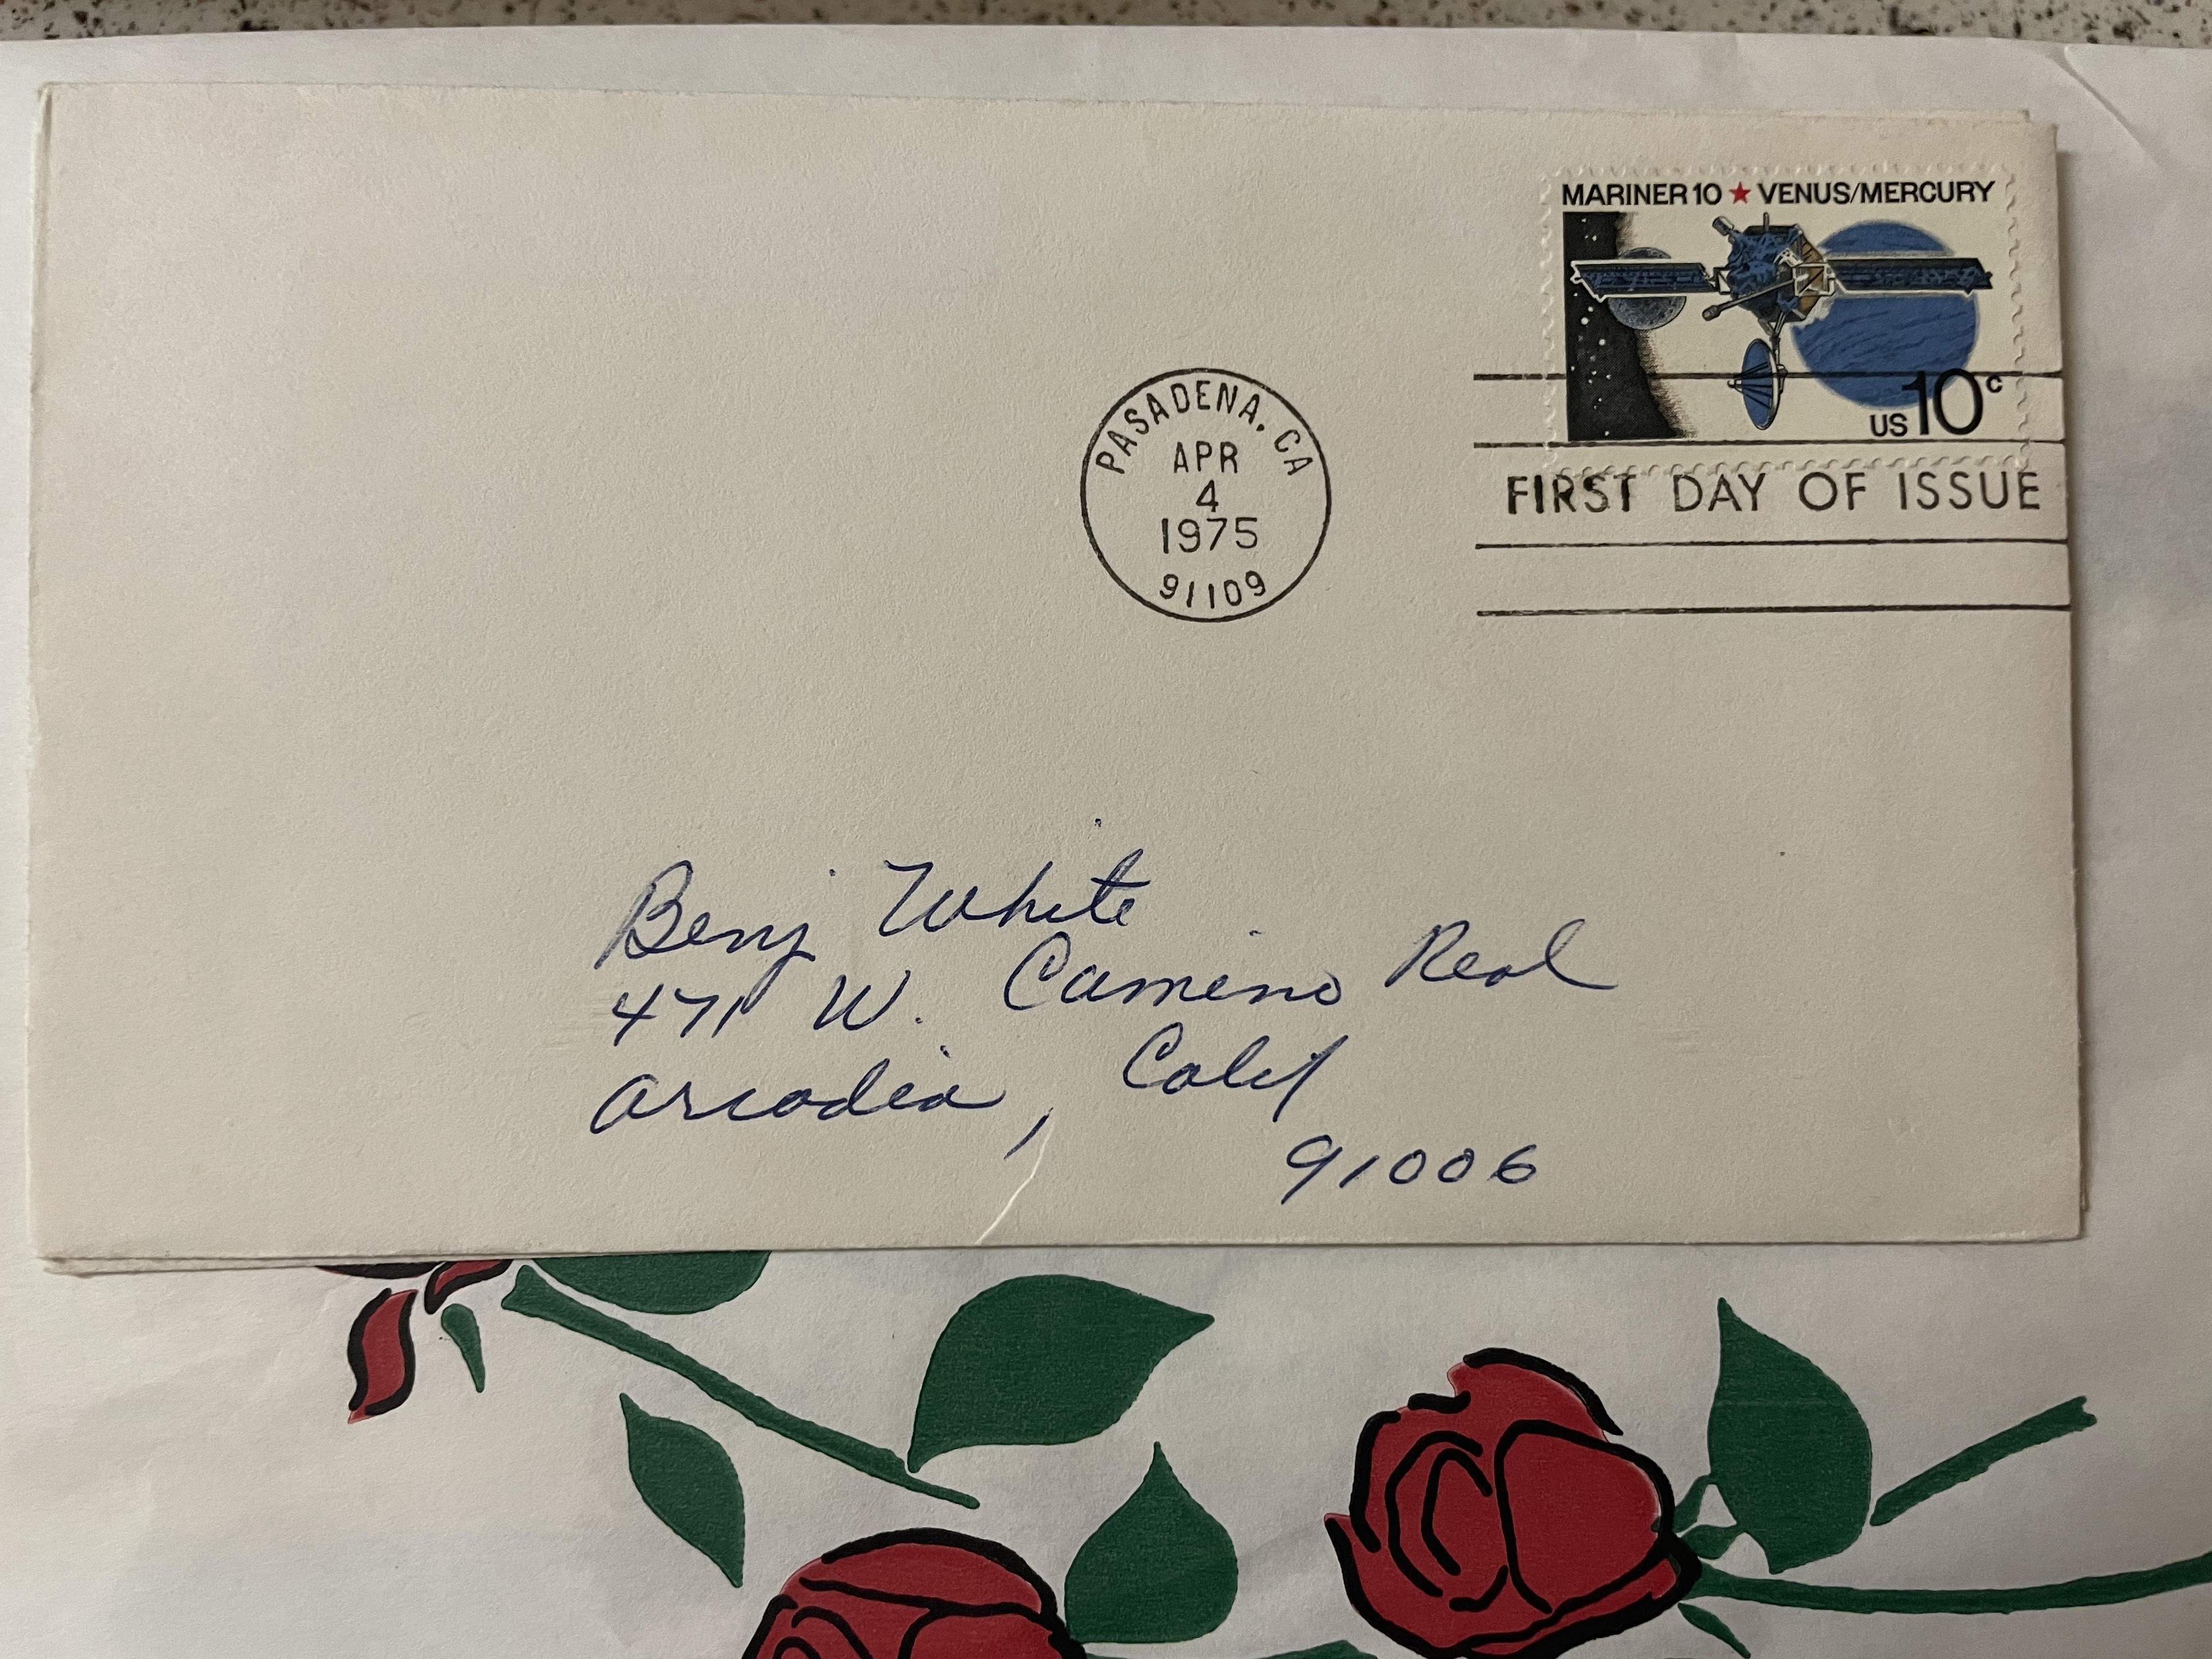 MARINER 10 ★ VENUS/MERCURY
US 10c
PASADENA, CA
APR
4
1975
91109
FIRST DAY OF ISSUE
Benj White
471 W. Camino Real
Arcadia, Calif
91006